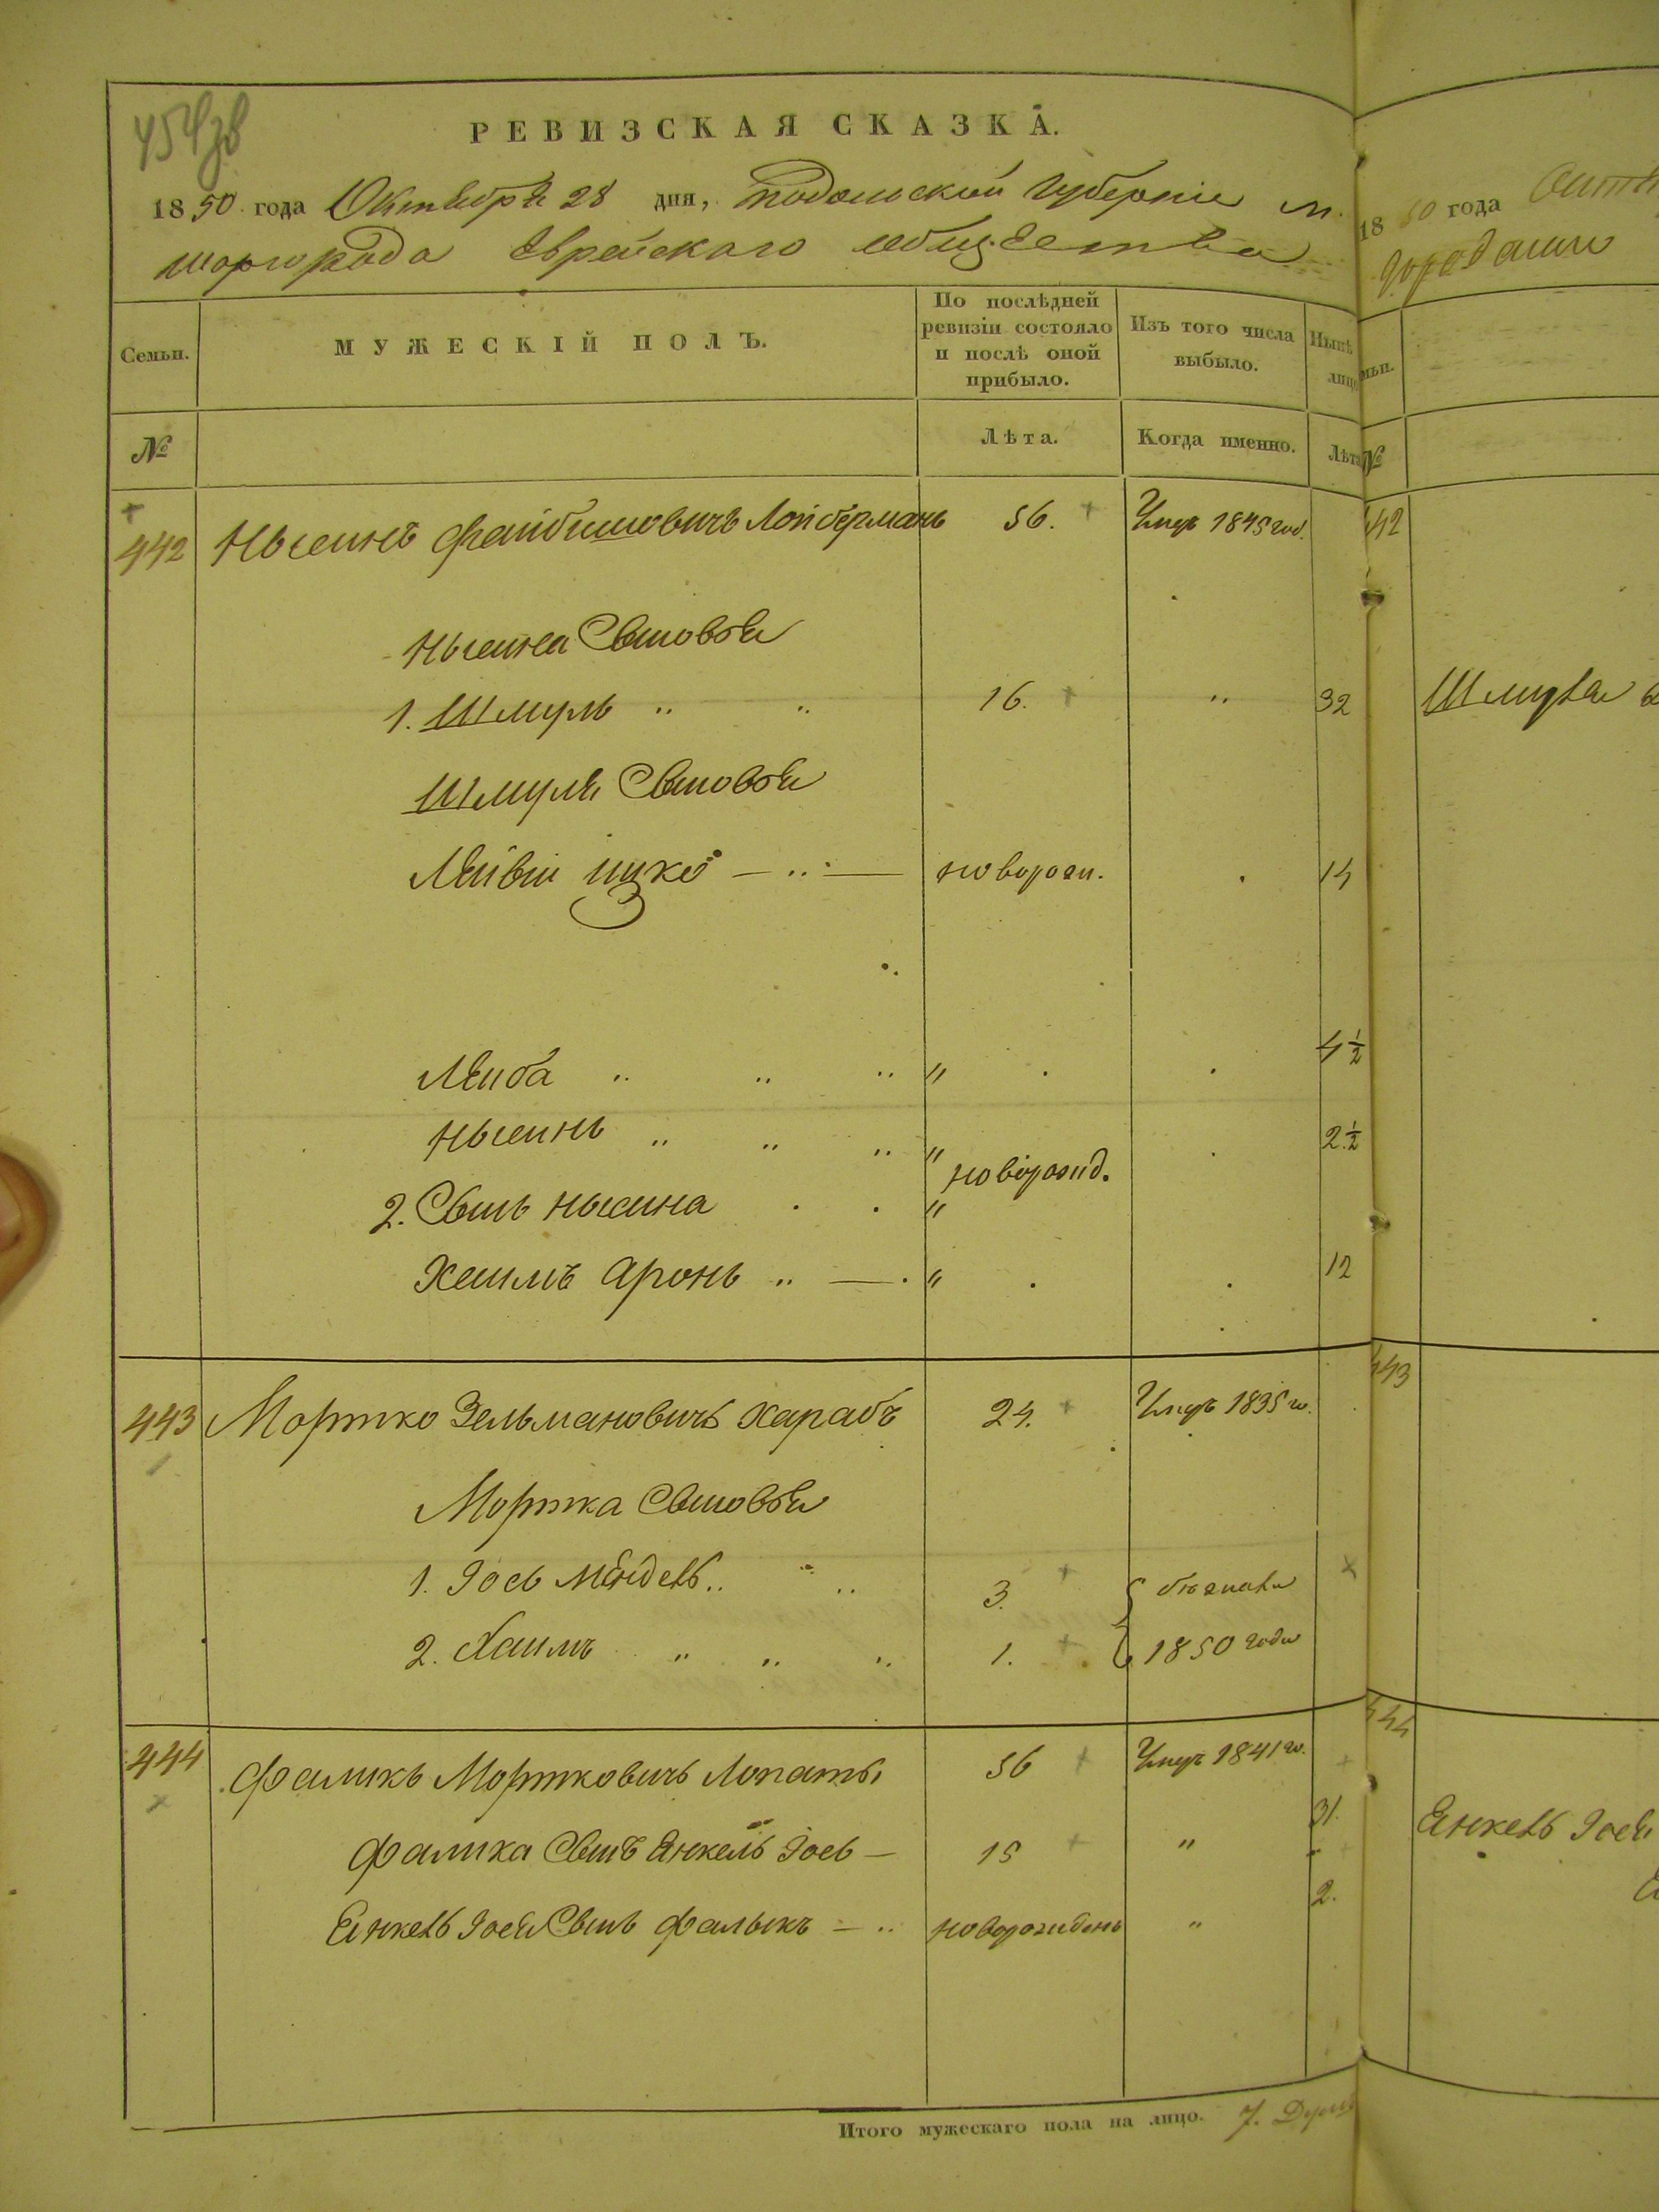 454 зв
РЕВИЗСКАЯ СКАЗКА.
1850 года Октября 28 дня, Подольской Губерніи м.
Шаргорода Еврейскаго общества
Семьи. МУЖЕСКІЙ ПОЛЪ. По послѣдней ревизіи состояло и послѣ оной прибыло. Изъ того числа выбыло. Нынѣ лицо
№ Лѣта. Когда именно. Лѣта
442 Нысинъ Файбишовичъ Лойберманъ 56. Умеръ 1845 год.
Нысина Сыновья
1. Шмуль " " 16. " 32
Шмуля Сыновья
Лейви Ицко — " — новорож. 14
Лейба " " " " 4 1/2
Нысинъ " " " " 2 1/2
новорожд.
2. Сынъ Нысина "
Хаимъ Аронъ " — " 12
443 Мортко Зельмановичъ Харабъ 24. Умеръ 1835 го.
Мортка Сыновья
1. Іось Мендель " " 3. бѣжали
2. Хаимъ " " " 1. 1850 года
444 Фаликъ Мортковичъ Лопата 56 Умеръ 1841 го.
Фалика Сынъ Янкель Іось — 15 " 31.
Янкель Іося Сынъ Фалыкъ — " новорожденъ " 2.
Итого мужескаго пола на лицо. 7. Душъ
1850 года
мьи.
№
442
Шмуля
443
444
Янкель Іося